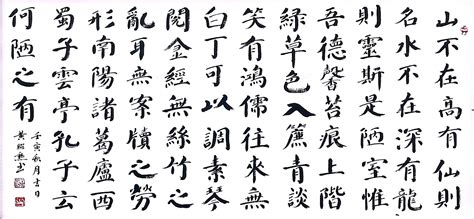 山不在高有仙則
名水不在深有龍
則靈斯是陋室惟
吾德馨苔痕上階
綠草色入簾青談
笑有鴻儒往來無
白丁可以調素琴
閱金經無絲竹之
亂耳無案牘之勞
形南陽諸葛廬西
蜀子雲亭孔子云
何陋之有
壬寅秋月吉日